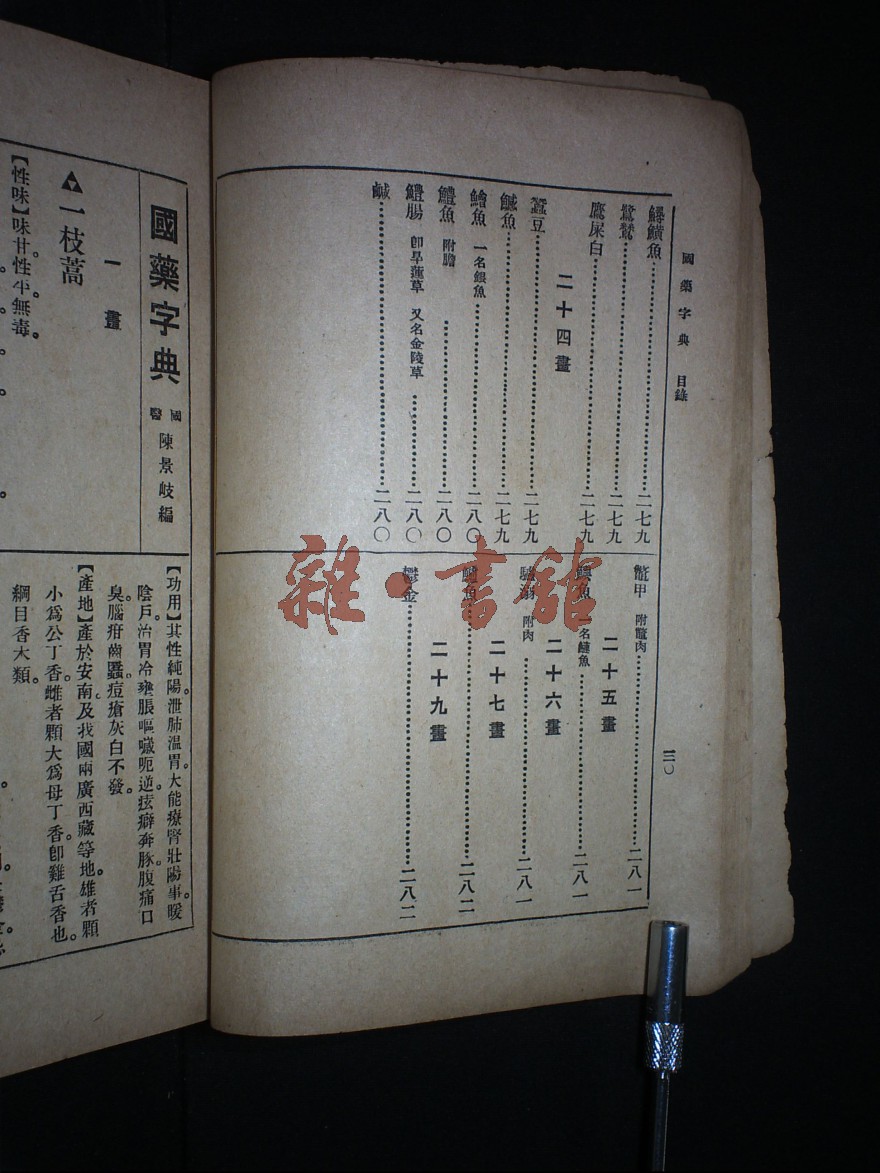 國藥字典 目錄
三〇
鱘鱑魚……二七九
鷺鷥……二七九
鷹屎白……二七九
二十四畫
蠶豆……二七九
鹹魚……二七九
鱠魚 一名鰻魚……二八〇
鱧魚 附膽……二八〇
鱧腸 即旱蓮草 又名金陵草……二八〇
鹹……二八〇
二十五畫
鱉甲 附鱉肉……二八一
二十六畫
魚 一名鰱魚……二八一
二十七畫
附肉……二八一
魚……二八二
二十九畫
鬱金……二八二
國藥字典
國醫 陳景岐編
一畫
一枝蒿
【性味】味甘性平無毒。
【功用】其性純陽。泄肺溫胃。大能療腎壯陽事暖
陰戶。治胃冷壅脹嘔噦呃逆。痃癖奔豚腹痛口
臭腦疳齒䘌痘瘡灰白不發。
【產地】產於安南及我國兩廣西藏等地。雄者顆
小爲公丁香。雌者顆大爲母丁香即雞舌香也。
綱目香木類。
雜·書館